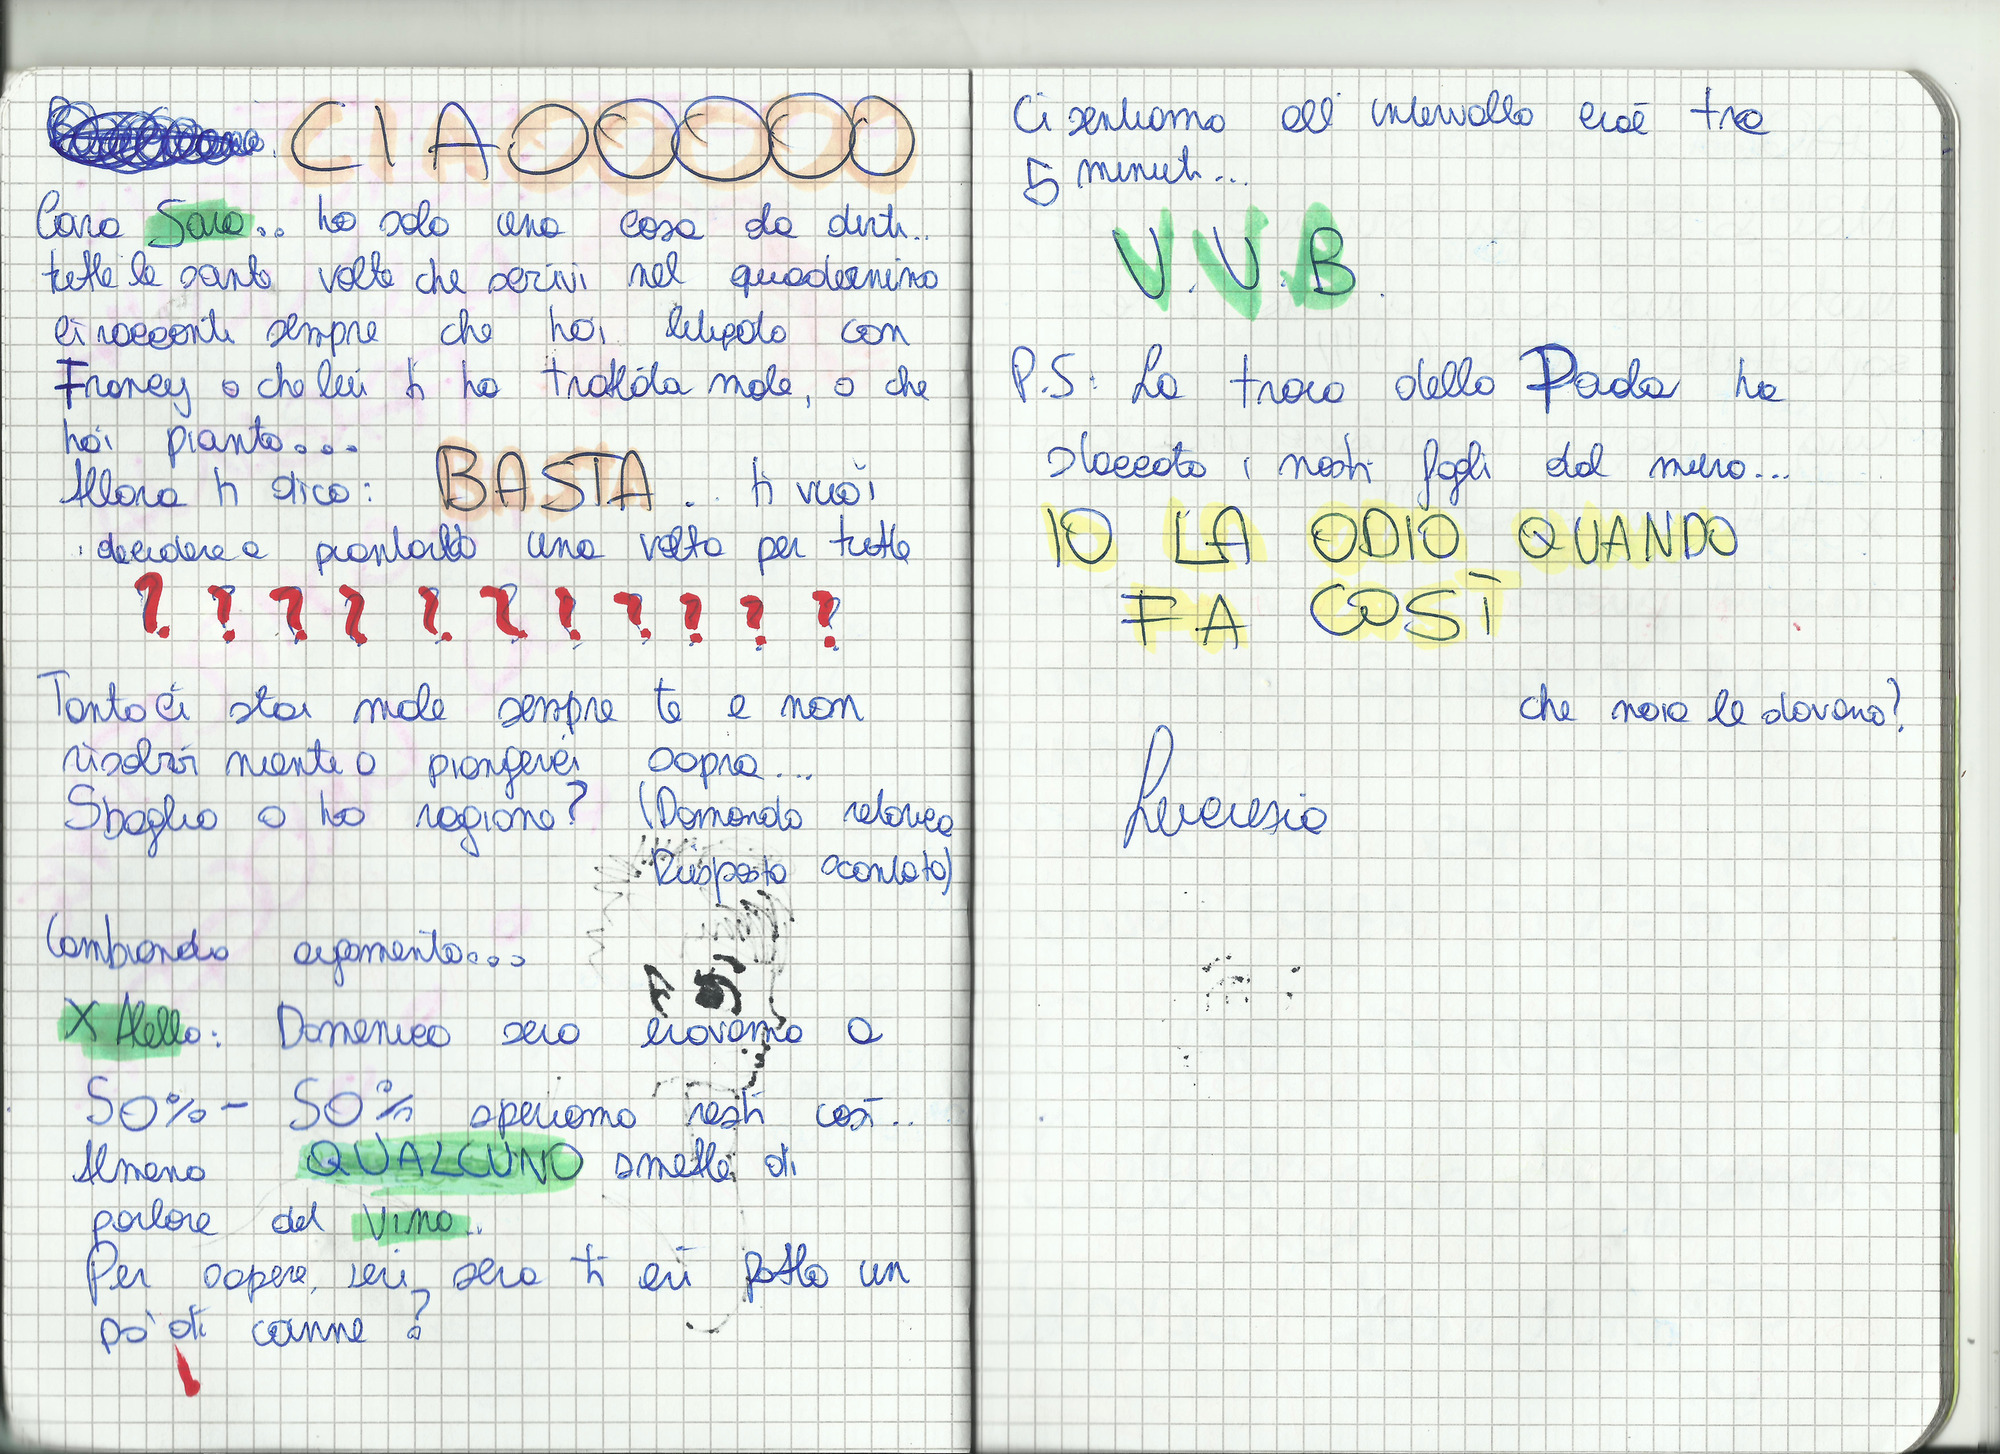 CIAOOOOO
Cara Sara.. ho solo una cosa da dirti..
tutte le sante volte che scrivi nel quadernino
ci racconti sempre che hai litigato con
Franey o che lui ti ha trattata male, o che
hai pianto...
Allora ti dico: BASTA .. ti vuoi
decidere a piantarla una volta per tutte
? ? ? ? ? ? ? ? ? ? ?
Tanto ci stai male sempre te e non
risolvi niente a piangerci sopra...
Sbaglio o ho ragione? (Domanda retorica
Risposta scontata)
Cambiando argomento...
X Alello: Domenica sera eravamo a
50% - 50% speriamo resti così..
Almeno QUALCUNO smette di
parlare del vino..
Per sapere, ieri sera ti eri fatto un
po' di canne?
Ci sentiamo all'intervallo cioè tra
5 minuti...
V.V.B.
P.S: La troia della Paola ha
staccato i nostri fogli dal muro...
IO LA ODIO QUANDO
FA COSÌ
che noia le davano?
Lucrezia